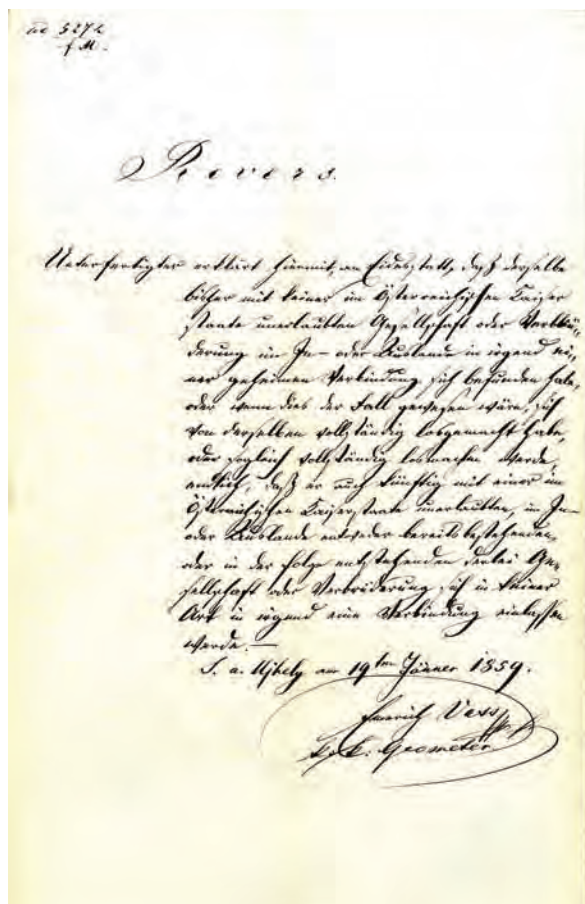 ad 5272
f M.
Revers.
Unterfertigter erklärt hiermit, an Eidesstatt, daß derselbe
bisher mit keiner im Österreichischen Kaiser
staate unerlaubten Gesellschaft oder Verbrü-
derung im In- oder Auslande in irgend ei-
ner geheimen Verbindung sich befunden habe,
oder wenn dies der Fall gewesen wäre, sich
von derselben vollständig losgemacht habe,
oder sogleich vollständig losmachen werde,
endlich, daß er auch künftig mit einer im
Österreichischen Kaiserstaate unerlaubten, im In-
oder Auslande entweder bereits bestehenden,
oder in der Folge entstehenden derlei Ge-
sellschaft oder Verbrüderung sich in keiner
Art in irgend eine Verbindung einlassen
werde.—
S. a. Ujhely am 19ten Jänner 1859.
Emerich Vass
k. k. Geometer